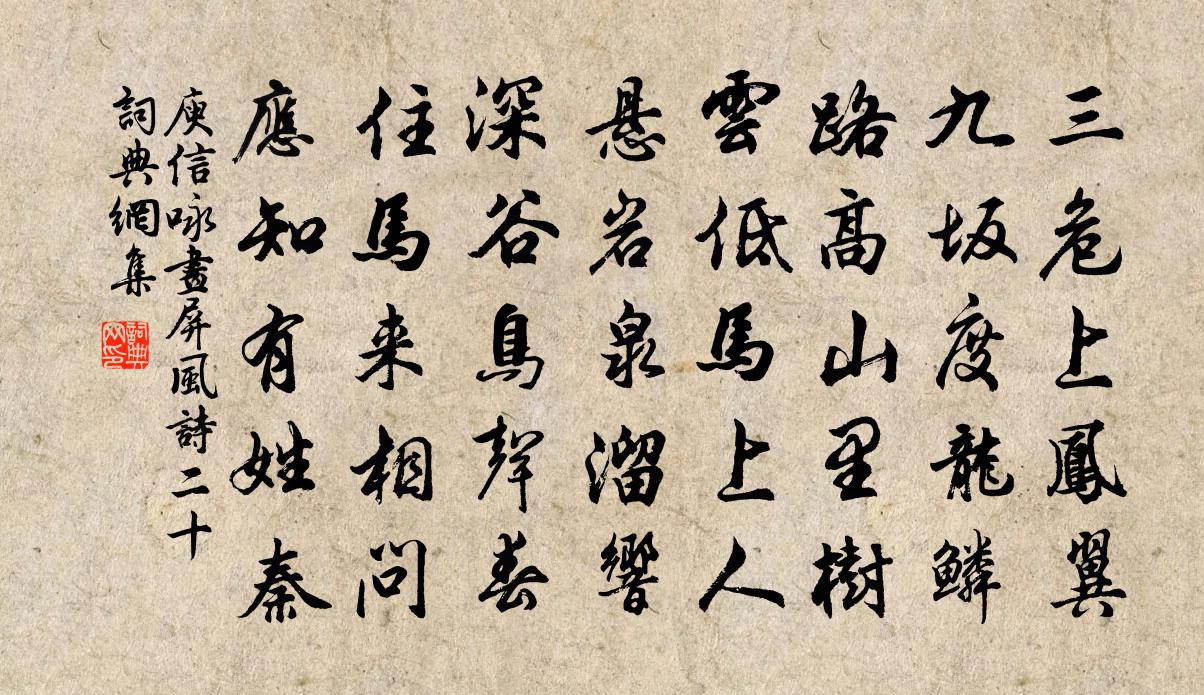 三危上鳳翼
九坂度龍鱗
路高山里樹
雲低馬上人
悬岩泉溜響
深谷鳥聲春
住馬来相問
應知有姓秦
庾信咏畫屏風詩二十
詞典網集
詞典網印